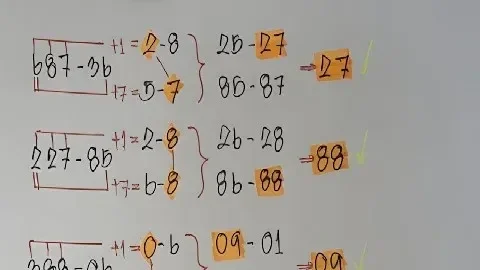 +1 = 2-8 25-27
687-36 ⇒ 27 ✓
+7 = 5-7 85-87
+1 = 2-8 26-28
227-85 ⇒ 88 ✓
+7 = 6-8 86-88
+1 = 0-6 09-01
09